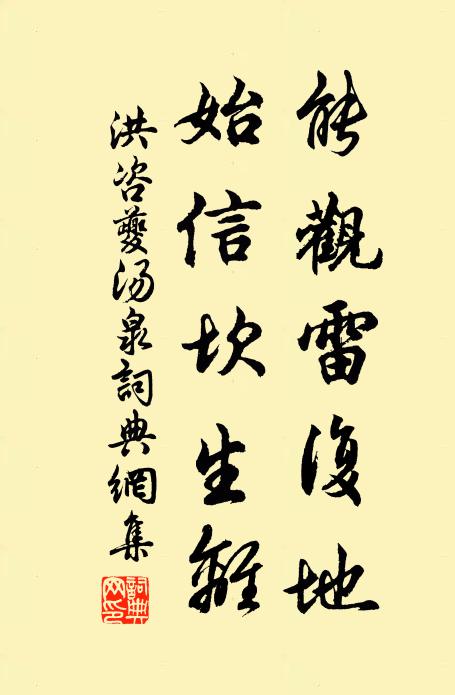 能觀雷復地
始信坎生離
洪咨夔湯泉詞典網集
詞典
网印